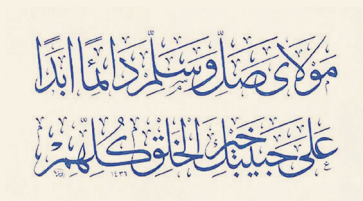 مَوْلَايَ صَلِّ وَسَلِّمْ دَائِمًا أَبَدًا
عَلَى حَبِيبِكَ خَيْرِ الْخَلْقِ كُلِّهِمْ
١٤٣٦